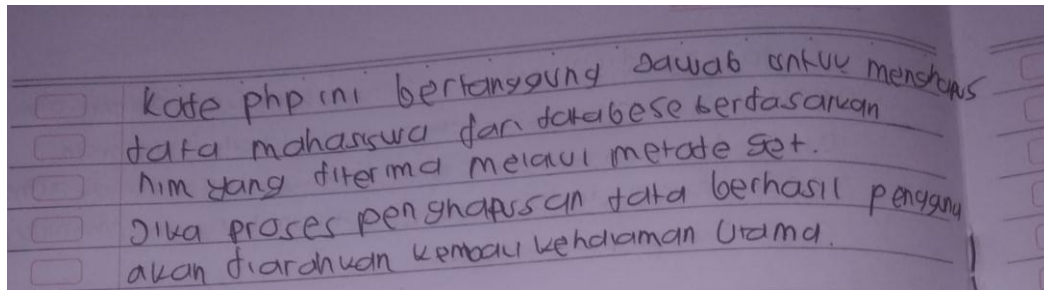 Kode php ini bertanggung Jawab untuk menghapus
data mahasiswa dari databese berdasarkan
nim yang diterima melalui metode get.
Jika proses penghapusan data berhasil pengguna
akan diarahkan kembali kehalaman Utama.